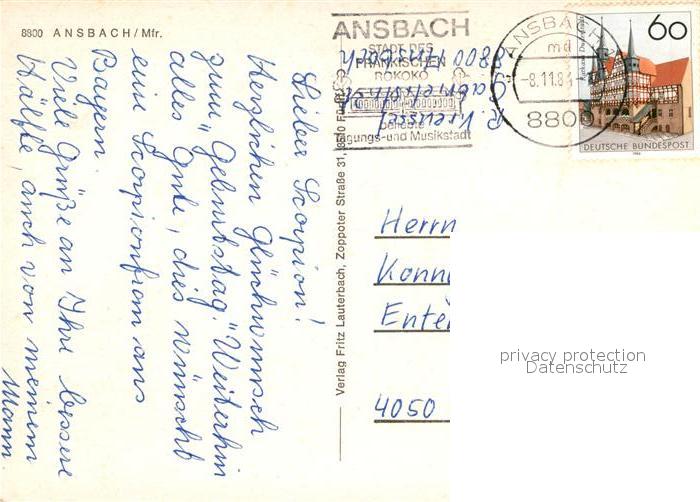 8800 ANSBACH/Mfr.
Lieber Scorpion!
Herzlichen Glückwunsch
zum „Geburtstag." Weiterhin
alles Gute, dies wünscht
ein Scorpionfram aus
Bayern.
Viele Grüße an Ihre bessere
Hälfte, auch von meinem
Mann
Verlag Fritz Lauterbach, Zoppoter Straße 31, 8500
ANSBACH
STADT DES
FRÄNKISCHEN
ROKOKO
beliebte
Tagungs- und Musikstadt
R. Kreussel
8800 Ansbach
ANSBACH
md
-8.11.84
8800
60
DEUTSCHE BUNDESPOST
Herrn
Konn
Ente
4050
privacy protection
Datenschutz